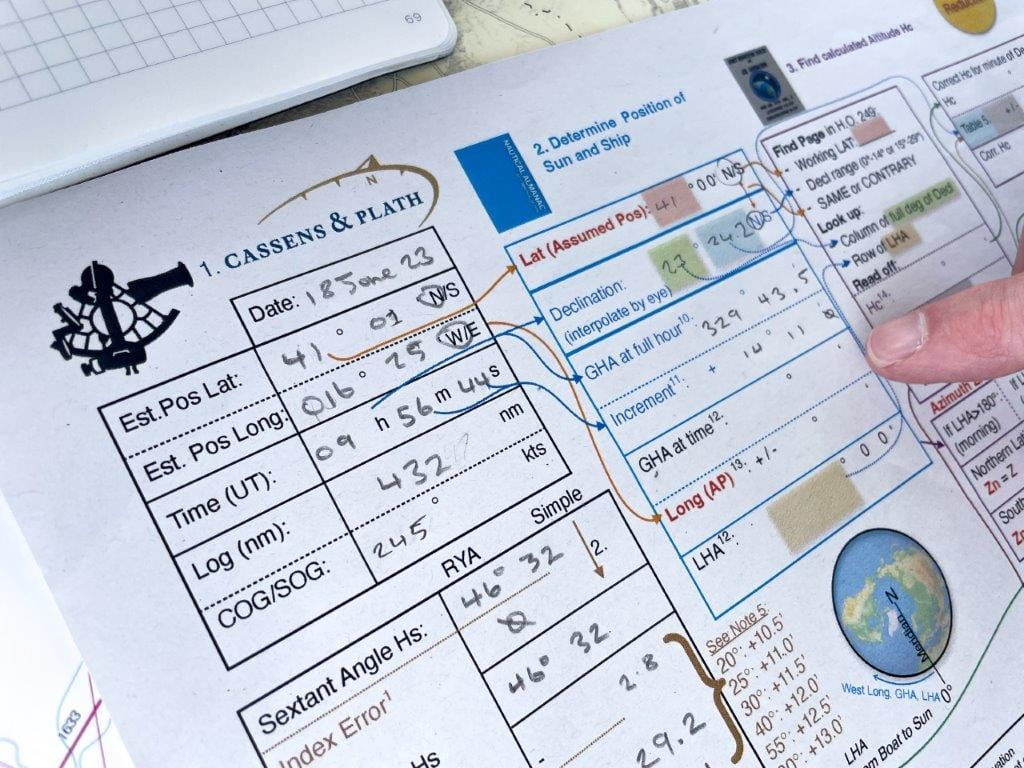 69
1. CASSENS & PLATH
N
Date: 18 June 23
Est.Pos Lat: 41 ° 01 N/S
Est. Pos Long: 016 ° 25 W/E
Time (UT): 09 h 56 m 44 s
Log (nm): 432 nm
COG/SOG: 245 ° kts
RYA Simple
Sextant Angle Hs: 46° 32 2.
Index Error1
46° 32
Hs 2.8
29.2
NAUTICAL ALMANAC
2. Determine Position of
Sun and Ship
Lat (Assumed Pos): 41 ° 00' N/S
Declination: 27 ° 24.2 N/S
(interpolate by eye)
GHA at full hour10: 329 ° 43.5
Increment11: + 14 11
GHA at time12: °
Long (AP) 13: +/- °
LHA12: ° 0 0'
See Note 5:
20°: +10.5'
25°: +11.0'
30°: +11.5'
40°: +12.0'
55°: +12.5'
+13.0'
N
Meridian
0°
West Long, GHA, LHA
LHA
Boat to Sun
3. Find calculated Altitude Hc
Find Page in H.O. 249:
- Working LAT
- Decl range (0°-14° or 15°-29°)
- SAME or CONTRARY
Look up:
Column of full deg of Decl
Row of LHA
Read off:
Hc14:
Correct Hc for minute of De
Hc
Table 5 +/-
Corr. Hc
Azimuth
If LHA>180°
(morning)
Northern Lat
Zn = Z
South
1633